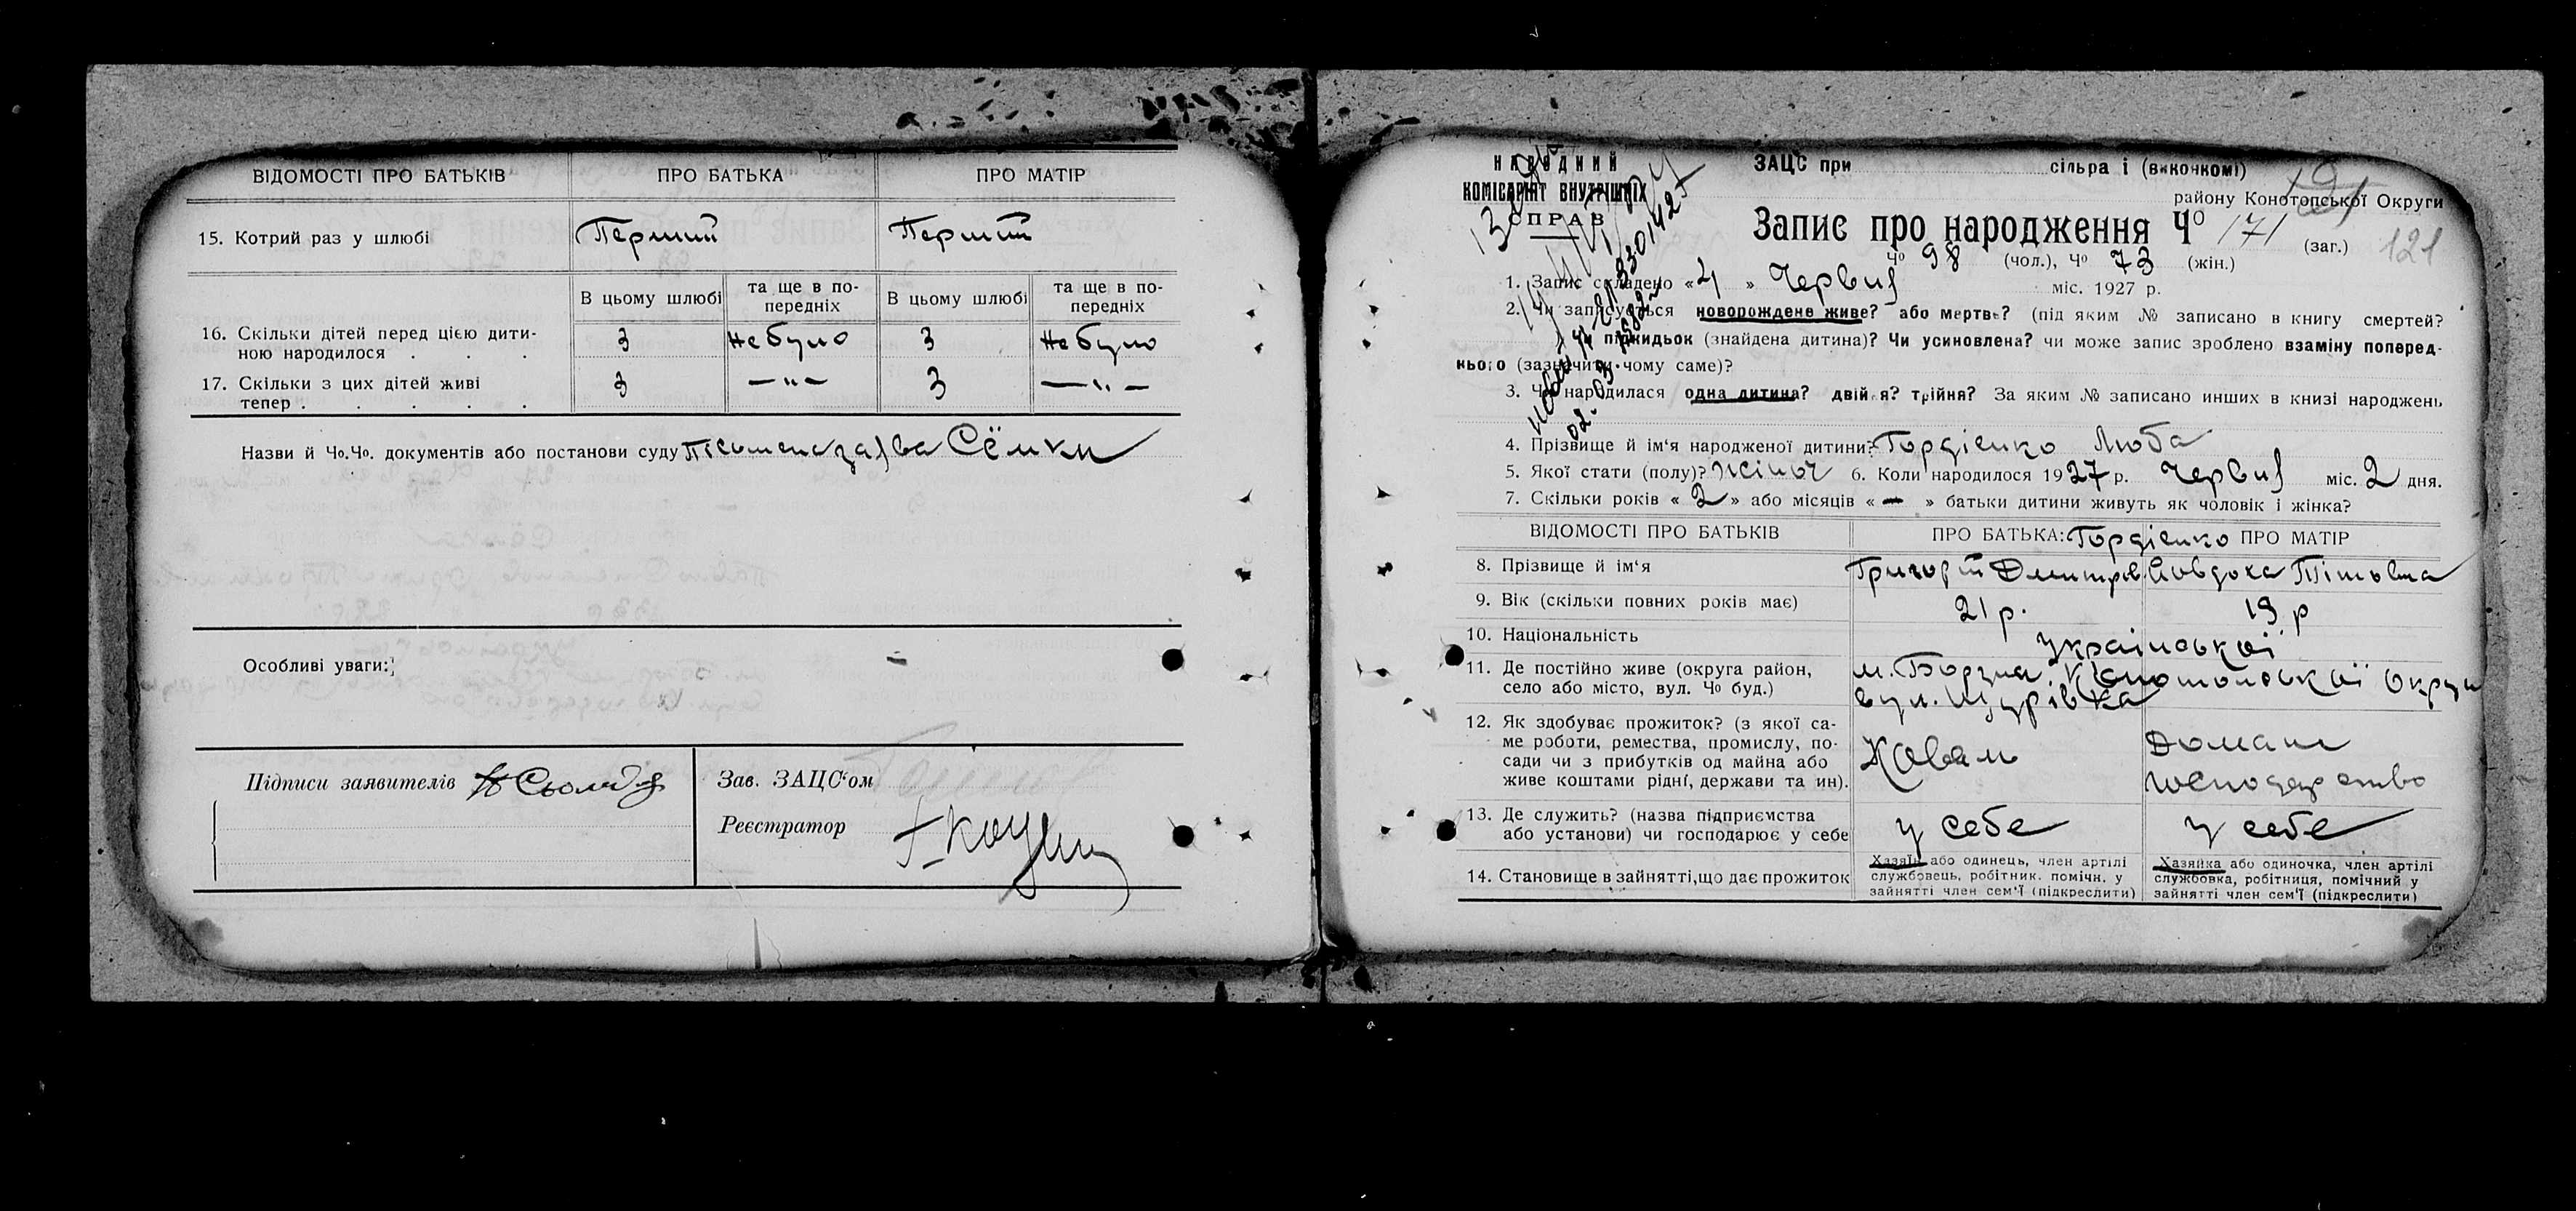 ВІДОМОСТІ ПРО БАТЬКІВ ПРО БАТЬКА ПРО МАТІР
15. Котрий раз у шлюбі Перший Перший
В цьому шлюбі та ще в по-передніх В цьому шлюбі та ще в по-передніх
16. Скільки дітей перед цією дити-
ною народилося . . . 3 не було 3 не було
17. Скільки з цих дітей живі
тепер . . . . . 3 —"— 3 —"—
Назви й Чо.Чо. документів або постанови суду Сёмки
Особливі уваги:
Підписи заявителів
Зав. ЗАЦС'ом
Реєстратор
НАРОДНИЙ
КОМІСАРІЯТ ВНУТРІШНІХ
СПРАВ
ЗАЦС при сільра і (викочкомі)
району Конотопської Округи
Запис про народження Чо 171 (заг.) 121
Чо 98 (чол.), Чо 73 (жін.)
1. Запис складено «4» Червня міс. 1927 р.
2. Чи записується новорождене живе? або мертве? (під яким № записано в книгу смертей?
Чи підкидьок (знайдена дитина)? Чи усиновлена? чи може запис зроблено взаміну поперед-
нього (зазначити чому саме)?
3. Чи народилася одна дитина? двійня? трійня? За яким № записано инших в книзі народжень
4. Прізвище й ім'я народженої дитини? Гордієнко Люба
5. Якої стати (полу)? Жіноч 6. Коли народилося 1927 р. Червня міс. 2 дня.
7. Скільки років «2» або місяців «—» батьки дитини живуть як чоловік і жінка?
ВІДОМОСТІ ПРО БАТЬКІВ ПРО БАТЬКА: Гордієнко ПРО МАТІР
8. Прізвище й ім'я Григорій Дмитрів Явдоха Тітовна
9. Вік (скільки повних років має) 21 р. 19 р
10. Національність української
11. Де постійно живе (округа район,
село або місто, вул. Чо буд.) м. Борзна, Конотопської Округи
вул. Щурівка
12. Як здобуває прожиток? (з якої са-
ме роботи, ремества, промислу, по-
сади чи з прибутків од майна або
живе коштами рідні, держави та ин). Коваль Домашн господарство
13. Де служить? (назва підприємства
або установи) чи господарює у себе у себе у себе
14. Становище в зайнятті, що дає прожиток
Хазяїн або одинець, член артілі
службовець, робітник. помічн. у
зайнятті член сем'ї (підкреслити)
Хазяйка або одиночка, член артілі
службовка, робітниця, помічний у
зайнятті член сем'ї (підкреслити)